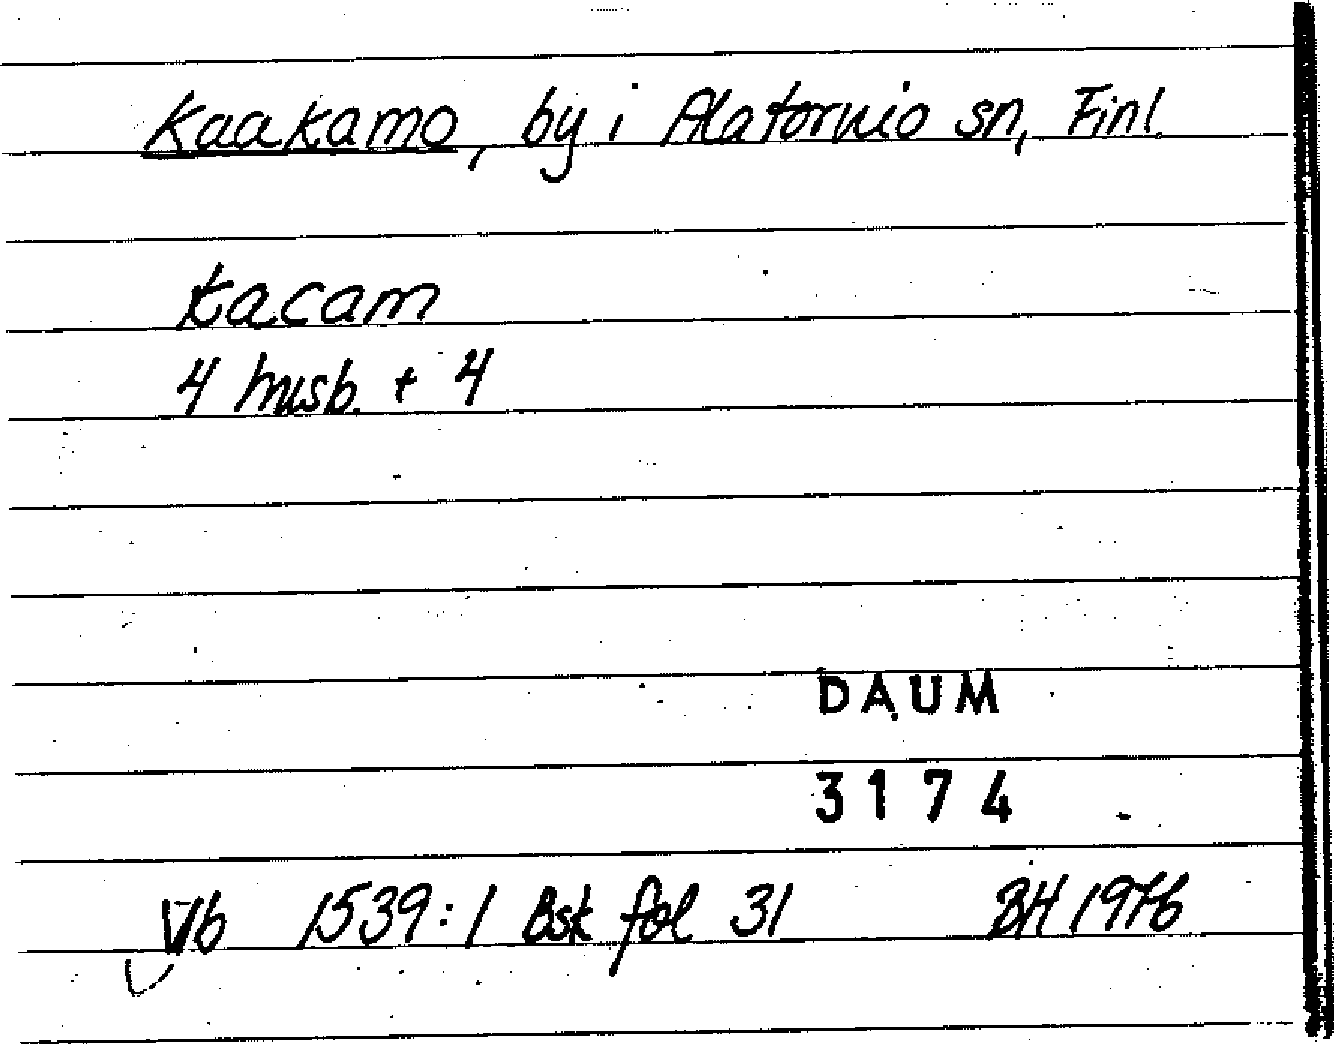 Kaakamo, by i Alatornio sn, Finl.
kacam
4 husb. + 4
DAUM
3174
Vb 1539:1 Bsk fol 31 BH 1976